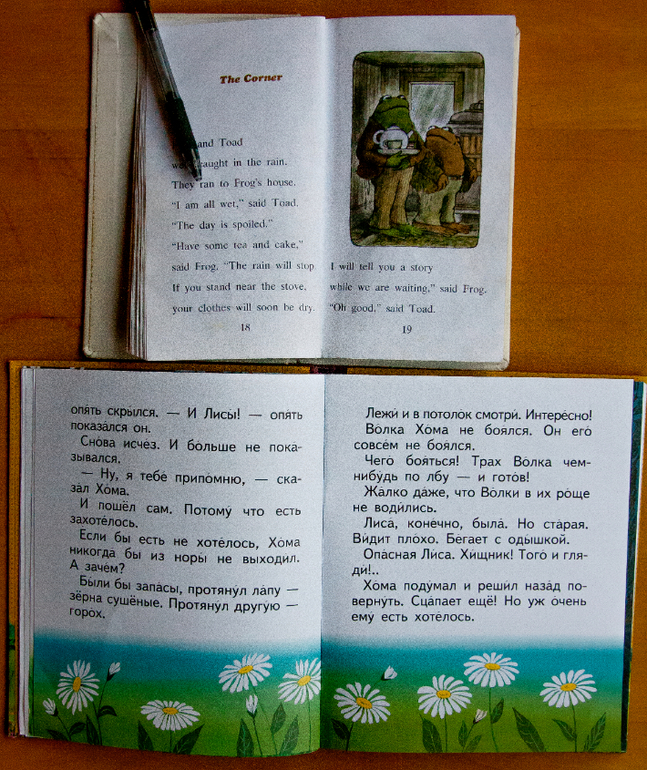 The Corner
and Toad
caught in the rain.
They ran to Frog's house.
"I am all wet," said Toad.
"The day is spoiled."
"Have some tea and cake,"
said Frog. "The rain will stop.
If you stand near the stove,
your clothes will soon be dry.
18
I will tell you a story
while we are waiting," said Frog.
"Oh good," said Toad.
19
опя́ть скры́лся. — И Лисы́! — опя́ть
показа́лся он.
Сно́ва исче́з. И бо́льше не пока-
зывался.
— Ну, я тебе́ припо́мню, — ска-
за́л Хо́ма.
И пошёл сам. Потому́ что есть
захоте́лось.
Е́сли бы есть не хоте́лось, Хо́ма
никогда́ бы из норы́ не выходи́л.
А заче́м?
Бы́ли бы запа́сы, протяну́л ла́пу —
зёрна сушёные. Протяну́л другу́ю —
горо́х.
Лежи́ и в потоло́к смотри́. Интере́сно!
Во́лка Хо́ма не боя́лся. Он его́
совсе́м не боя́лся.
Чего́ боя́ться! Трах Во́лка чем-
нибу́дь по лбу — и гото́в!
Жа́лко да́же, что Во́лки в их ро́ще
не води́лись.
Лиса́, коне́чно, была́. Но ста́рая.
Ви́дит пло́хо. Бе́гает с оды́шкой.
Опа́сная Лиса́. Хи́щник! Того́ и гля-
ди́!..
Хо́ма поду́мал и реши́л наза́д по-
верну́ть. Сца́пает ещё! Но уж о́чень
ему́ есть хоте́лось.